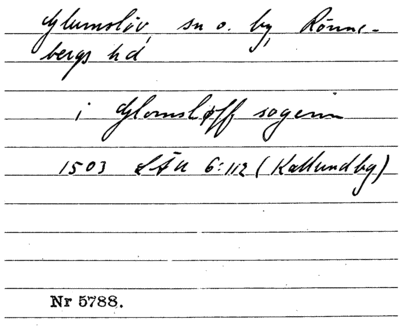 Glumslöv, sn o. by, Rönne-
bergs hd
i Glomsløff sogenn
1503 LÄU 6:112 (Kallundbg)
Nr 5788.